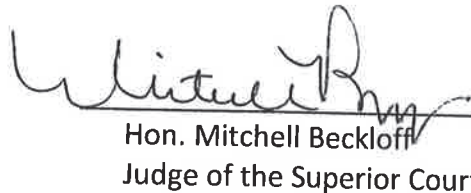 Hon. Mitchell Beckloff
Judge of the Superior Court